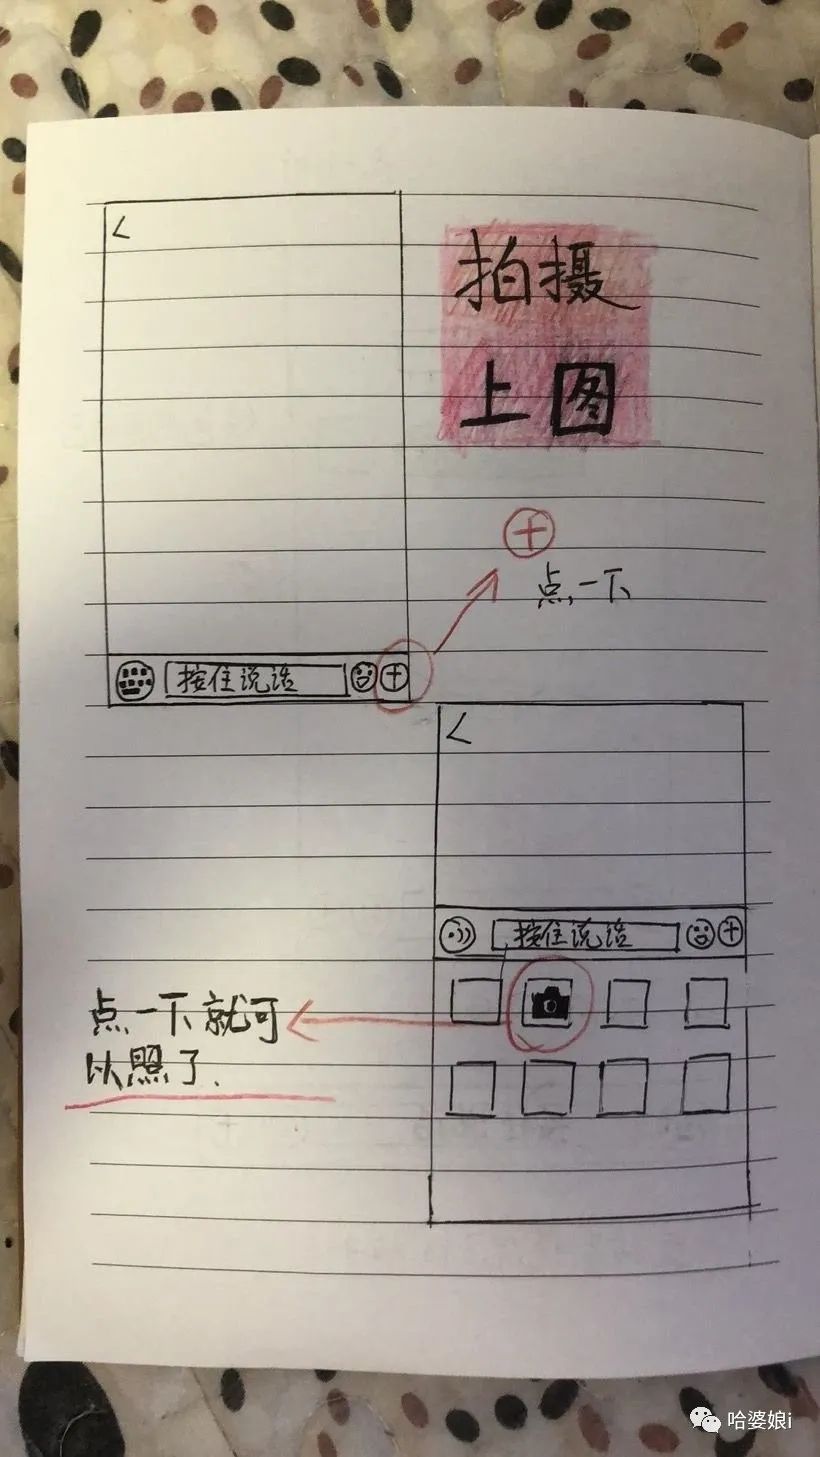 拍摄
上图
点一下
按住说话
按住说话
点一下就可
以照了.
哈婆娘i